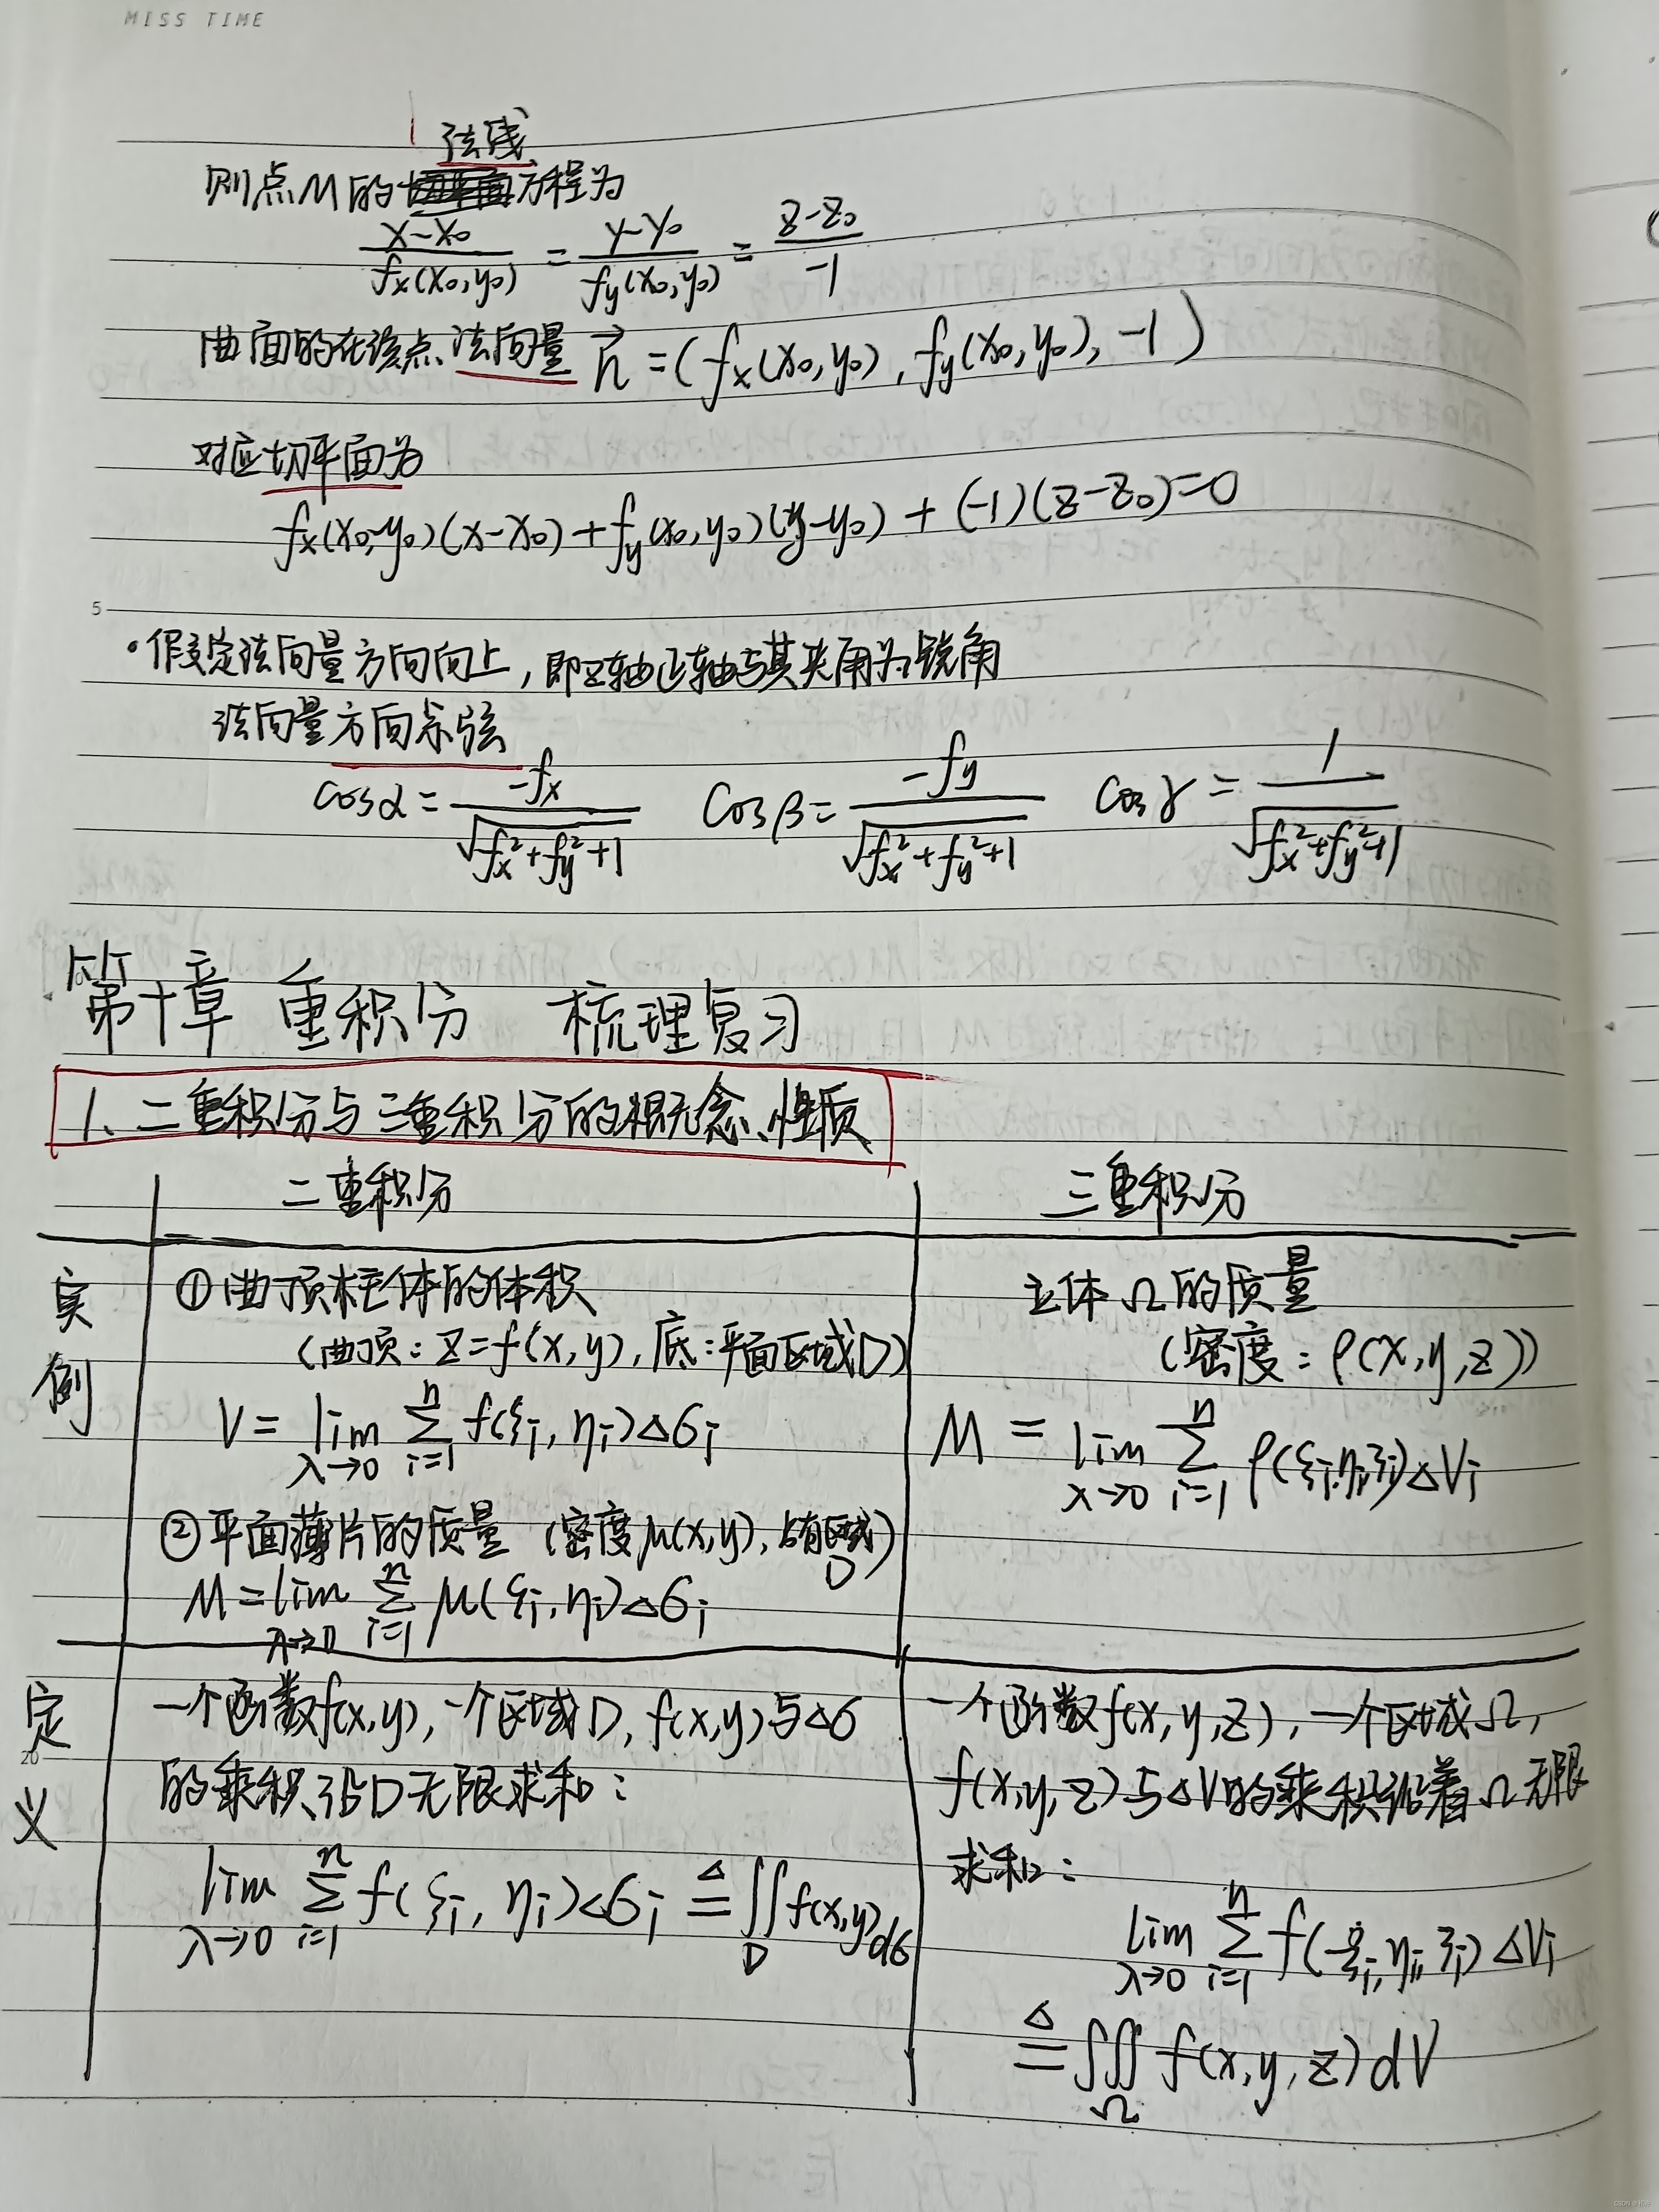 MISS TIME
法线
则点M的方程为
x-x₀/fx(x₀,y₀) = y-y₀/fy(x₀,y₀) = z-z₀/-1
曲面的在该点法向量 n⃗ =(fx(x₀,y₀), fy(x₀,y₀), -1)
对应切平面为
fx(x₀,y₀)(x-x₀)+fy(x₀,y₀)(y-y₀)+(-1)(z-z₀)=0
5
·假定法向量方向向上,即z轴正轴与其夹角为锐角
法向量方向余弦
cosα = -fx/√(fx²+fy²+1) cosβ = -fy/√(fx²+fy²+1) cosγ = 1/√(fx²+fy²+1)
第十章 重积分 梳理复习
1、二重积分与三重积分的概念、性质
二重积分 三重积分
实例
①曲顶柱体的体积
(曲顶:z=f(x,y),底:平面区域D)
V = lim λ→0 Σ i=1 n f(ξi, ηi)Δσi
②平面薄片的质量 (密度μ(x,y),占有区域D)
M = lim λ→0 Σ i=1 n μ(ξi, ηi)Δσi
立体Ω的质量
(密度:ρ(x,y,z))
M = lim λ→0 Σ i=1 n ρ(ξi,ηi,ζi)ΔVi
定义
20
一个函数f(x,y),一个区域D,f(x,y)与Δσ
的乘积沿D无限求和:
lim λ→0 Σ i=1 n f(ξi, ηi)Δσi ≜ ∬D f(x,y)dσ
一个函数f(x,y,z),一个区域Ω,
f(x,y,z)与ΔV的乘积沿着Ω无限
求和:
lim λ→0 Σ i=1 n f(ξi,ηi,ζi)ΔVi
≜ ∭Ω f(x,y,z)dV